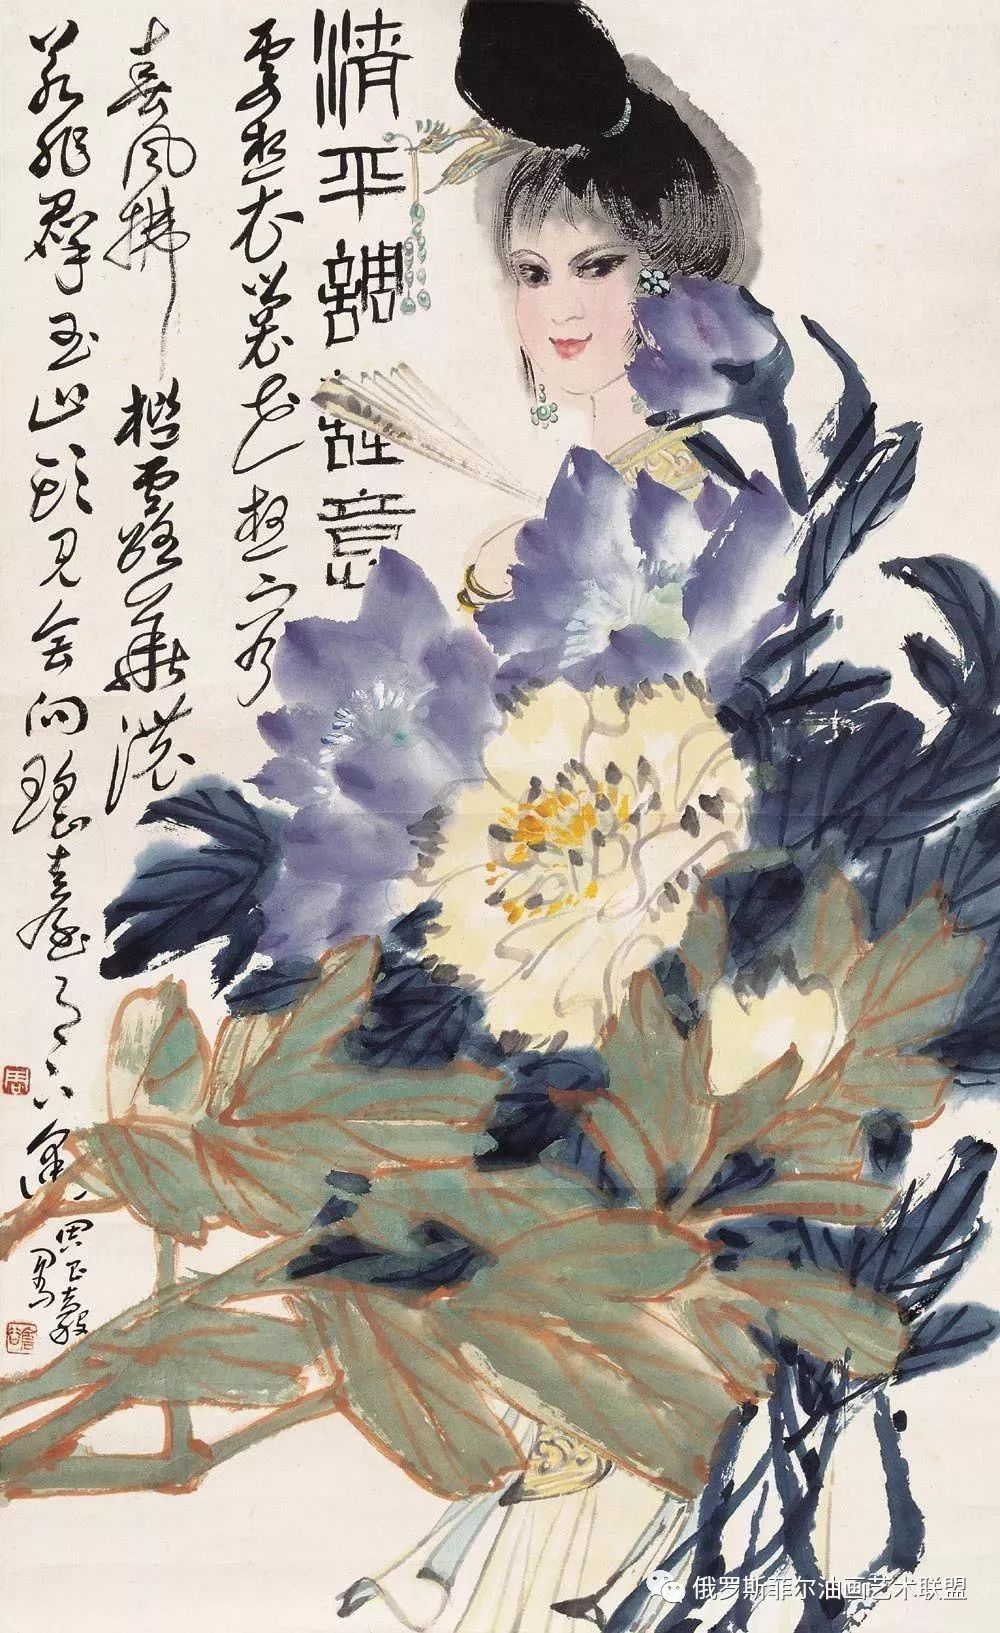 清平調詩意
雲想衣裳花想容
春風拂檻露華濃
若非群玉山頭見會向瑤臺月下逢
周
俄罗斯菲尔油画艺术联盟